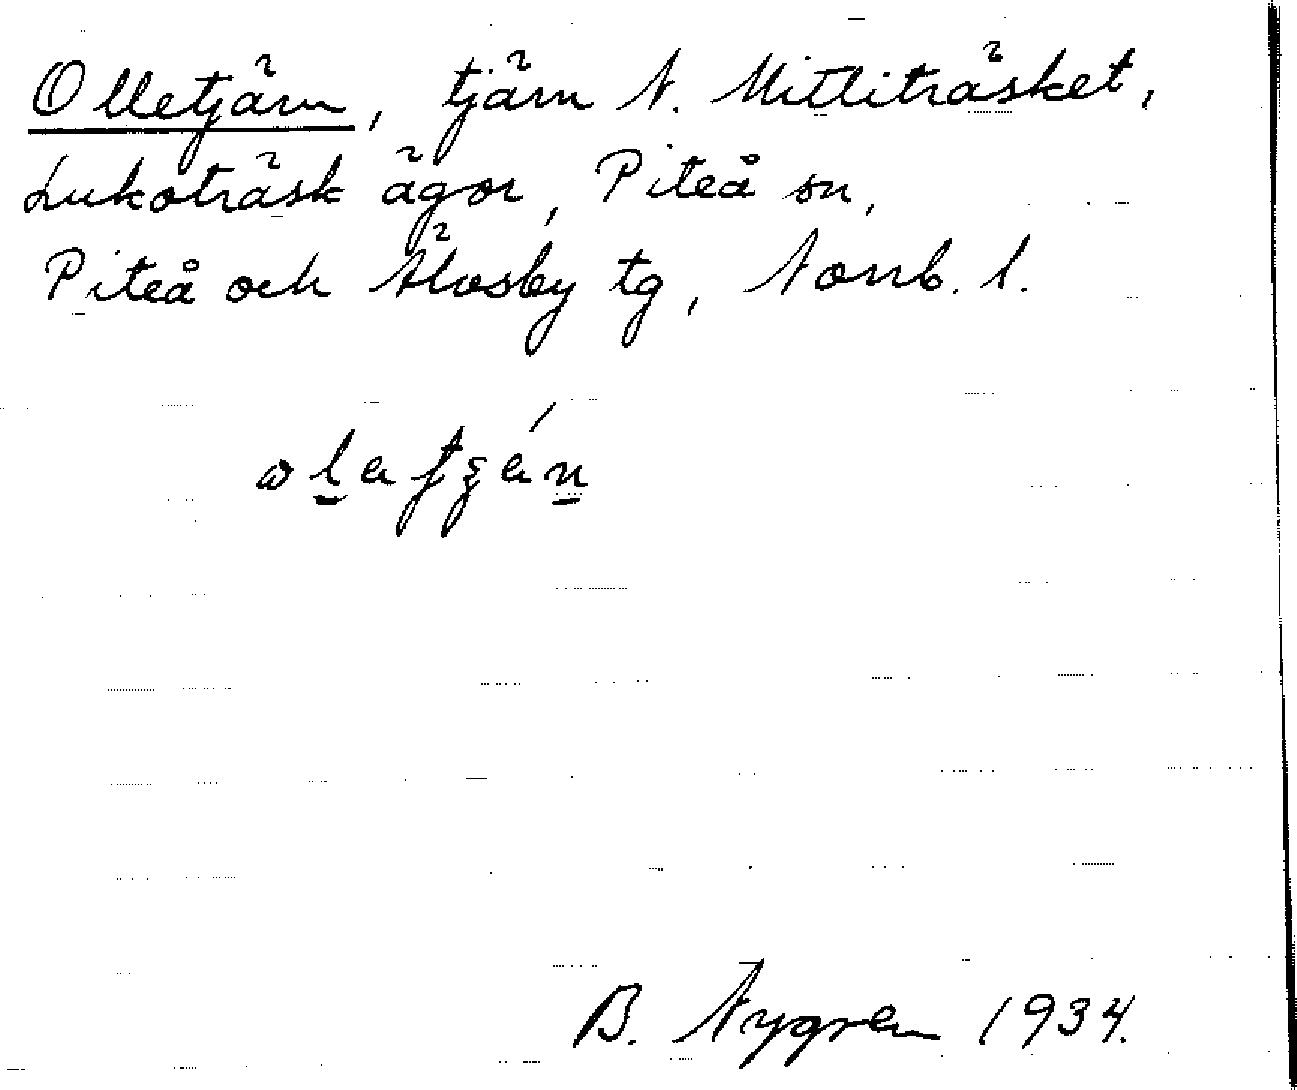 Olletjärn, tjärn N. Mittiträsket,
Lukoträsk ägor, Piteå sn,
Piteå och Älvsby tg, Norrb. l.
B. Nygren 1934.